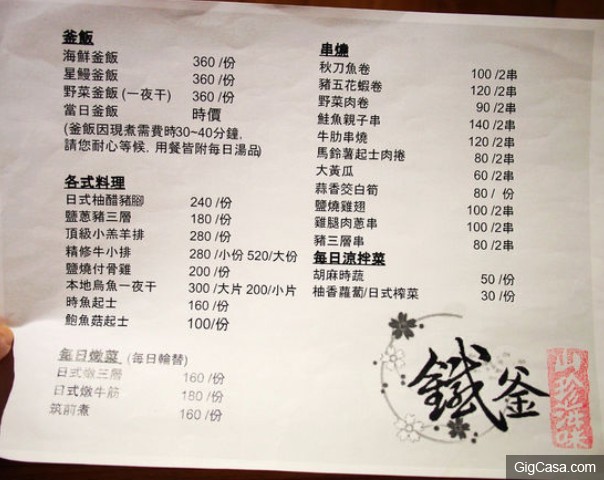 釜飯
海鮮釜飯 360 /份
星鰻釜飯 360 /份
野菜釜飯 (一夜干) 360 /份
當日釜飯 時價
(釜飯因現煮需費時30~40分鐘,
請您耐心等候, 用餐皆附每日湯品)
各式料理
日式柚醋豬腳 240 /份
鹽蔥豬三層 180 /份
頂級小羔羊排 280 /份
精修牛小排 280 /小份 520/大份
鹽燒付骨雞 200 /份
本地烏魚一夜干 300 /大片 200/小片
時魚起士 160 /份
鮑魚菇起士 100/份
每日燉菜 (每日輪替)
日式燉三層 160 /份
日式燉牛筋 180 /份
筑前煮 160 /份
串燒
秋刀魚卷 100 /2串
豬五花蝦卷 120 /2串
野菜肉卷 90 /2串
鮭魚親子串 140 /2串
牛肋串燒 120 /2串
馬鈴薯起士肉捲 80 /2串
大黃瓜 60 /2串
蒜香筊白筍 80 / 份
鹽燒雞翅 100 /2串
雞腿肉蔥串 100 /2串
豬三層串 80 /2串
每日涼拌菜
胡麻時蔬 50 /份
柚香蘿蔔/日式榨菜 30 /份
鐵釜
山珍海味
GigCasa.com